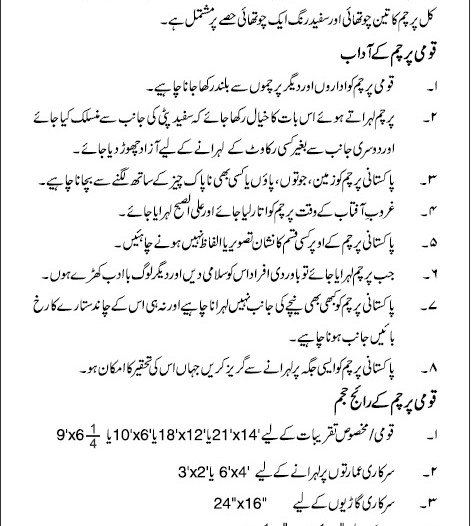 کل پرچم کا تین چوتھائی اور سفید رنگ ایک چوتھائی حصے پر مشتمل ہے۔
قومی پرچم کے آداب
۱۔ قومی پرچم کو اداروں اور دیگر پرچموں سے بلند رکھا جانا چاہیے۔
۲۔ پرچم لہراتے ہوئے اس بات کا خیال رکھا جائے کہ سفید پٹی کی جانب سے منسلک کیا جائے
اور دوسری جانب سے بغیر کسی رکاوٹ کے لہرانے کے لیے آزاد چھوڑ دیا جائے۔
۳۔ پاکستانی پرچم کو زمین، جوتوں، پاؤں یا کسی بھی ناپاک چیز کے ساتھ لگنے سے بچانا چاہیے۔
۴۔ غروبِ آفتاب کے وقت پرچم کو اتار لیا جائے اور علی الصبح لہرایا جائے۔
۵۔ پاکستانی پرچم کے اوپر کسی قسم کا نشان تصویر یا الفاظ نہیں ہونے چاہئیں۔
۶۔ جب پرچم لہرایا جائے تو باوردی افراد اس کو سلامی دیں اور دیگر لوگ باادب کھڑے ہوں۔
۷۔ پاکستانی پرچم کو کبھی بھی نیچے کی جانب نہیں لہرانا چاہیے اور نہ ہی اس کے چاند ستارے کا رخ
بائیں جانب ہونا چاہیے۔
۸۔ پاکستانی پرچم کو ایسی جگہ پر لہرانے سے گریز کریں جہاں اس کی تحقیر کا امکان ہو۔
قومی پرچم کے رائج حجم
۱۔ قومی/مخصوص تقریبات کے لیے 21'x14' یا 18'x12' یا 10'x6' یا 9'x6 1/4
۲۔ سرکاری عمارتوں پر لہرانے کے لیے 6'x4' یا 3'x2'
۳۔ سرکاری گاڑیوں کے لیے 24"x16"